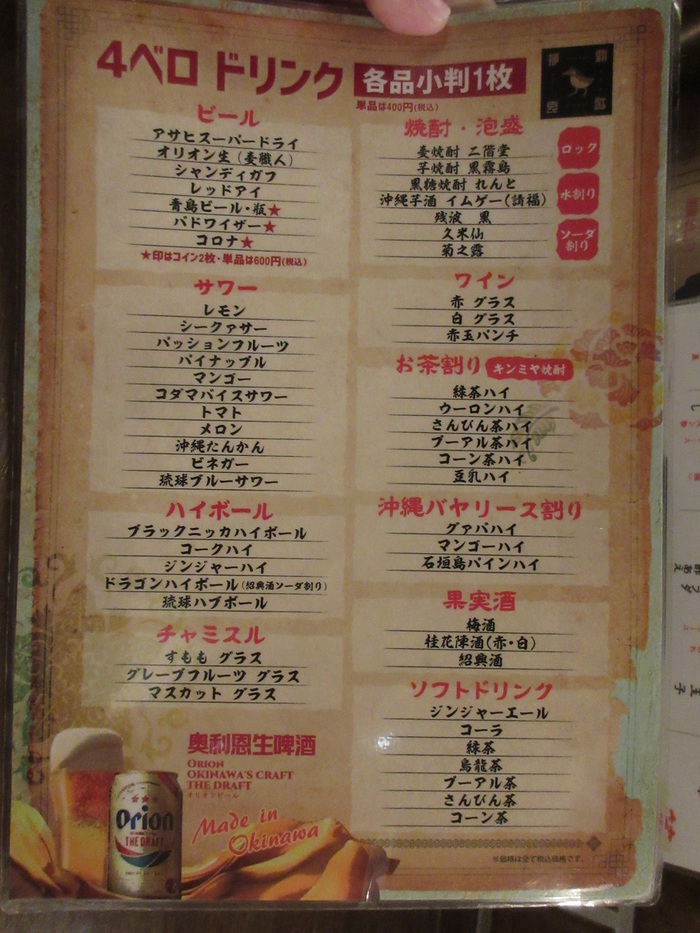 4ベロ ドリンク 各品小判1枚
単品は400円(税込)
ビール
アサヒスーパードライ
オリオン生(麦職人)
シャンディガフ
レッドアイ
青島ビール・瓶★
バドワイザー★
コロナ★
★印はコイン2枚・単品は600円(税込)
サワー
レモン
シークァサー
パッションフルーツ
パイナップル
マンゴー
コダマバイスサワー
トマト
メロン
沖縄たんかん
ビネガー
琉球ブルーサワー
ハイボール
ブラックニッカハイボール
コークハイ
ジンジャーハイ
ドラゴンハイボール(紹興酒ソーダ割り)
琉球ハブボール
チャミスル
すもも グラス
グレープフルーツ グラス
マスカット グラス
奥利恩生啤酒
ORION
OKINAWA'S CRAFT
THE DRAFT
オリオンビール
Made in
Okinawa
Orion
THE DRAFT
焼酎・泡盛
麦焼酎 二階堂
芋焼酎 黒霧島
黒糖焼酎 れんと
沖縄芋酒 イムゲー(請福)
残波 黒
久米仙
菊之露
ロック
水割り
ソーダ
割り
ワイン
赤 グラス
白 グラス
赤玉パンチ
お茶割り キンミヤ焼酎
緑茶ハイ
ウーロンハイ
さんぴん茶ハイ
プーアル茶ハイ
コーン茶ハイ
豆乳ハイ
沖縄バヤリース割り
グァバハイ
マンゴーハイ
石垣島パインハイ
果実酒
梅酒
桂花陳酒(赤・白)
紹興酒
ソフトドリンク
ジンジャーエール
コーラ
緑茶
烏龍茶
プーアル茶
さんぴん茶
コーン茶
※価格は全て税込価格です。